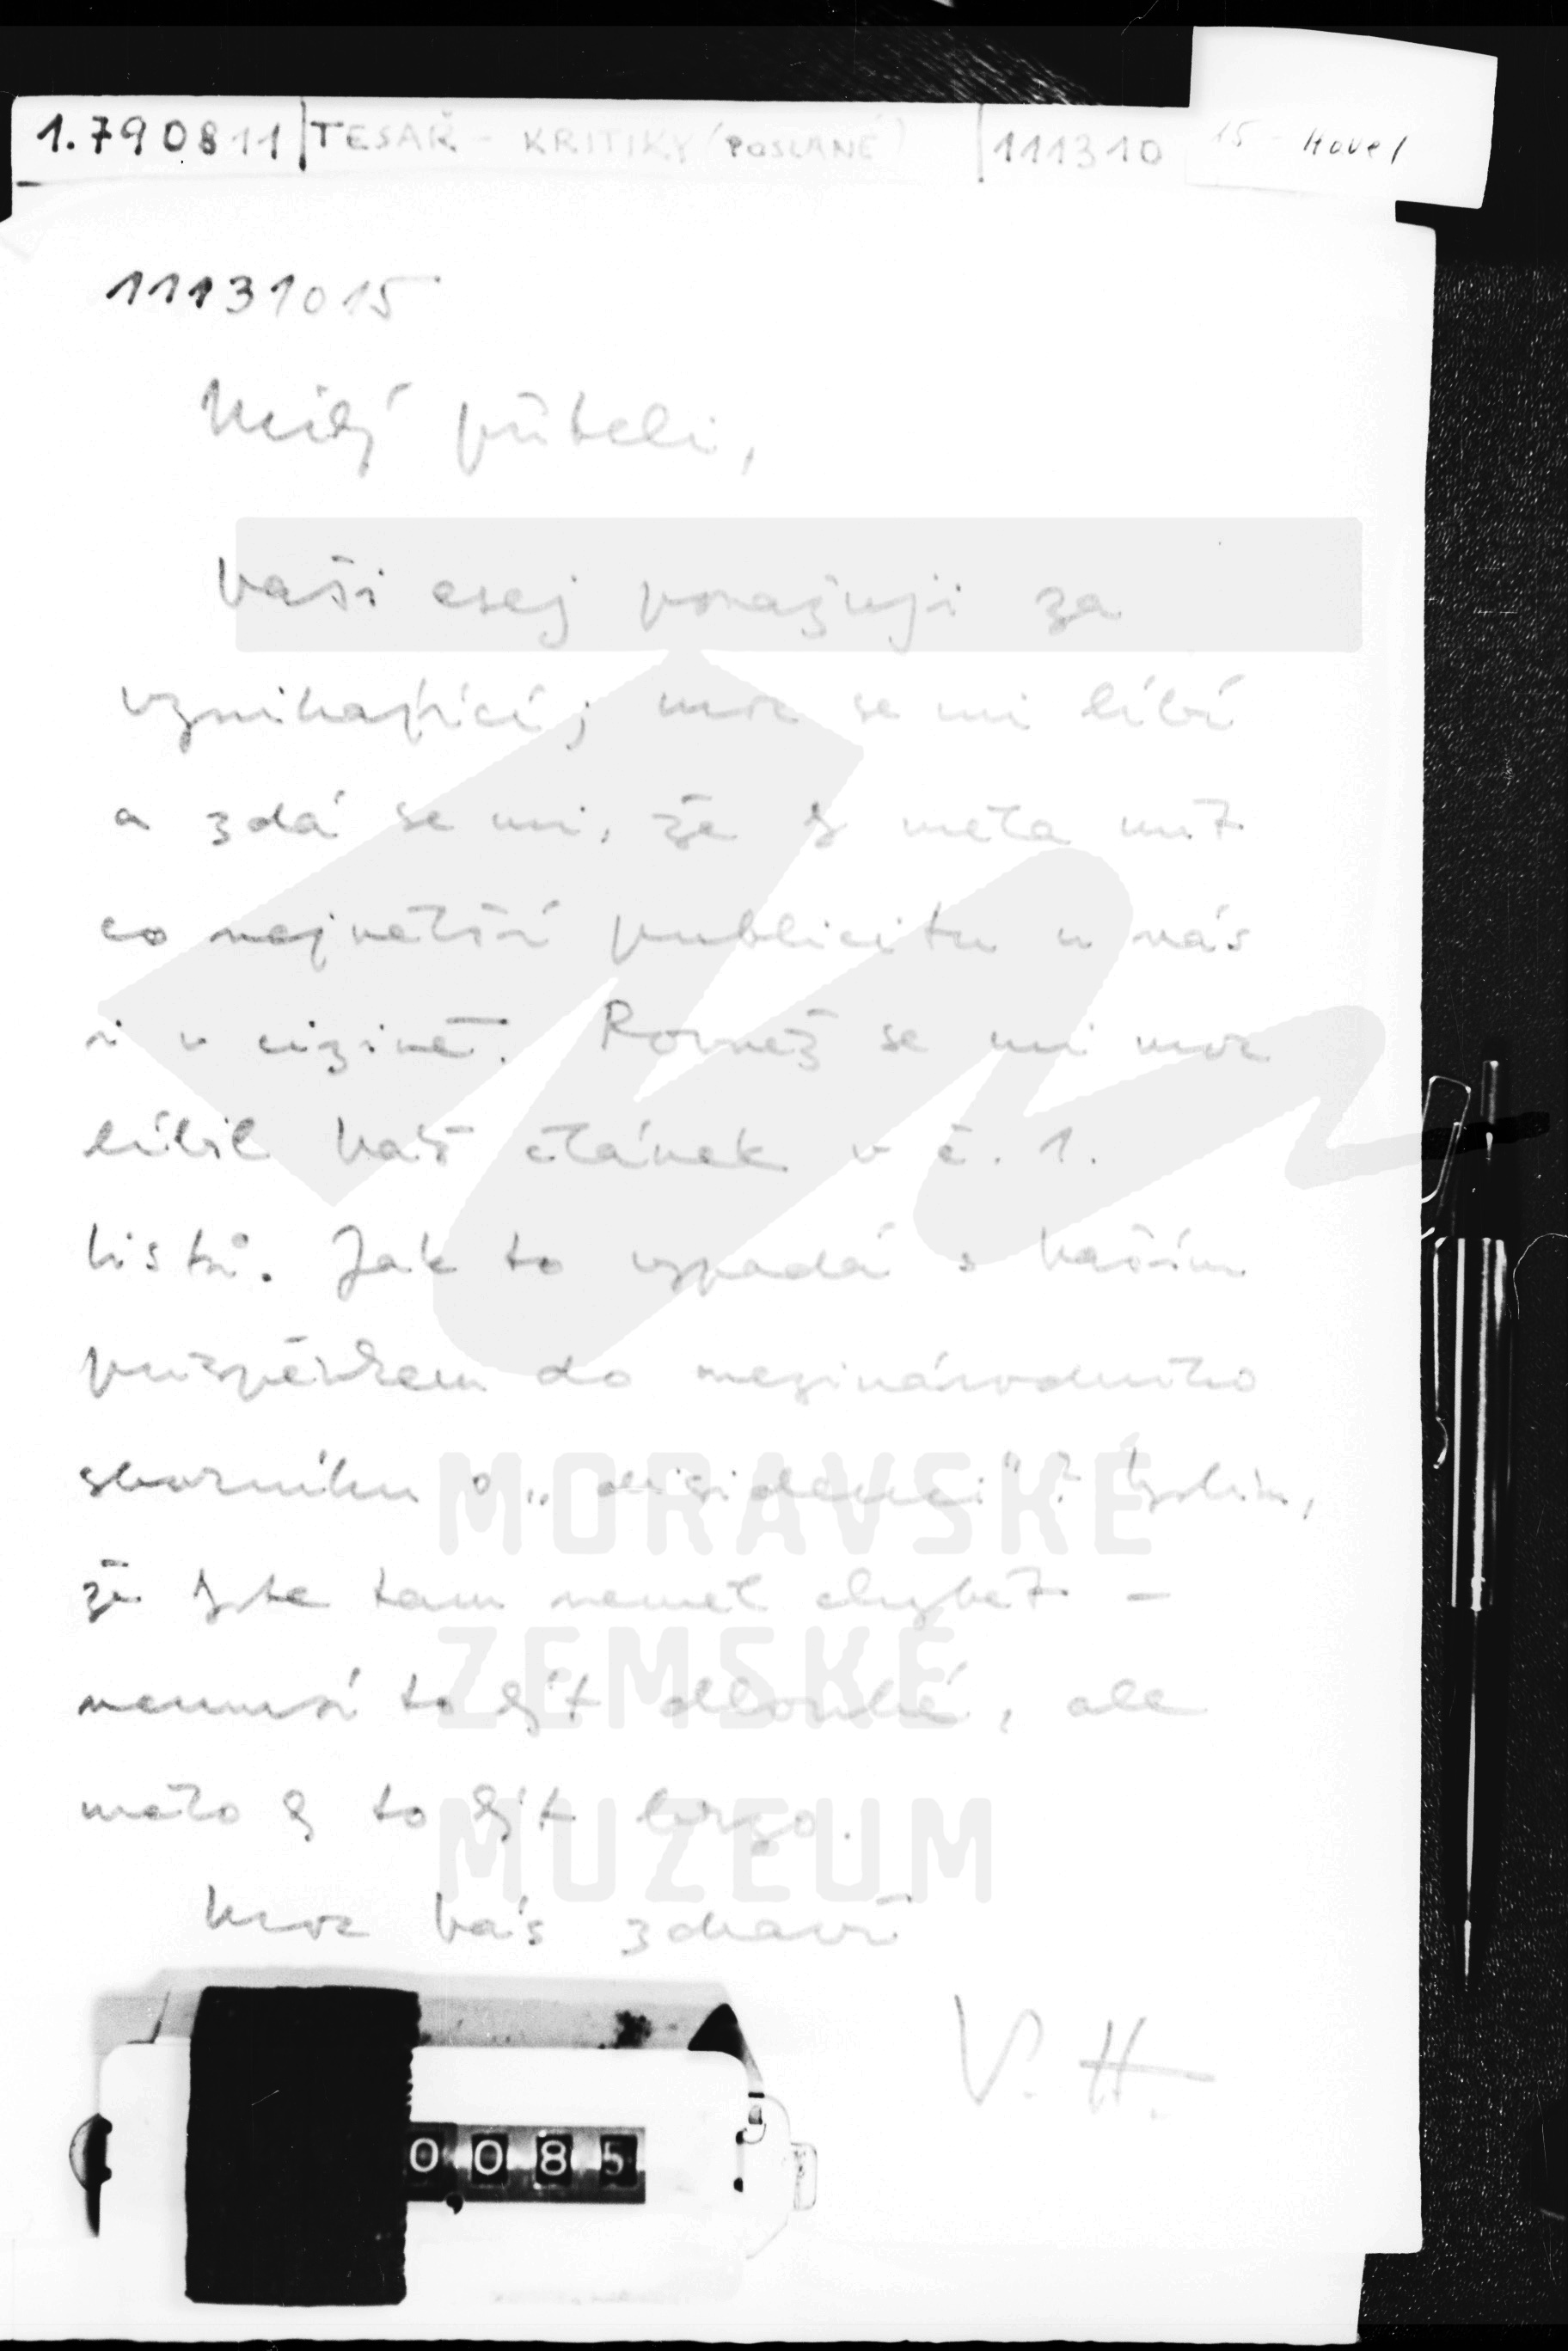 1.790811 | TESAŘ - KRITIKY (POSLANÉ) | 111310 15 - Havel
11131015
Milý příteli,
Vaši esej považuji za
vynikající; moc se mi líbí
a zdá se mi, že by měla mít
co největší publicitu u nás
i v cizině. Rovněž se mi moc
líbil Váš článek v č. 1.
Listů. Jak to vypadá s Vaším
příspěvkem do mezinárodního
sborníku o „disidenci"? Myslím,
že byste tam neměl chybět -
nemusí to být dlouhé, ale
mělo by to být brzo.
Moc Vás zdraví
V. H.
MORAVSKÉ
ZEMSKÉ
MUZEUM
0085